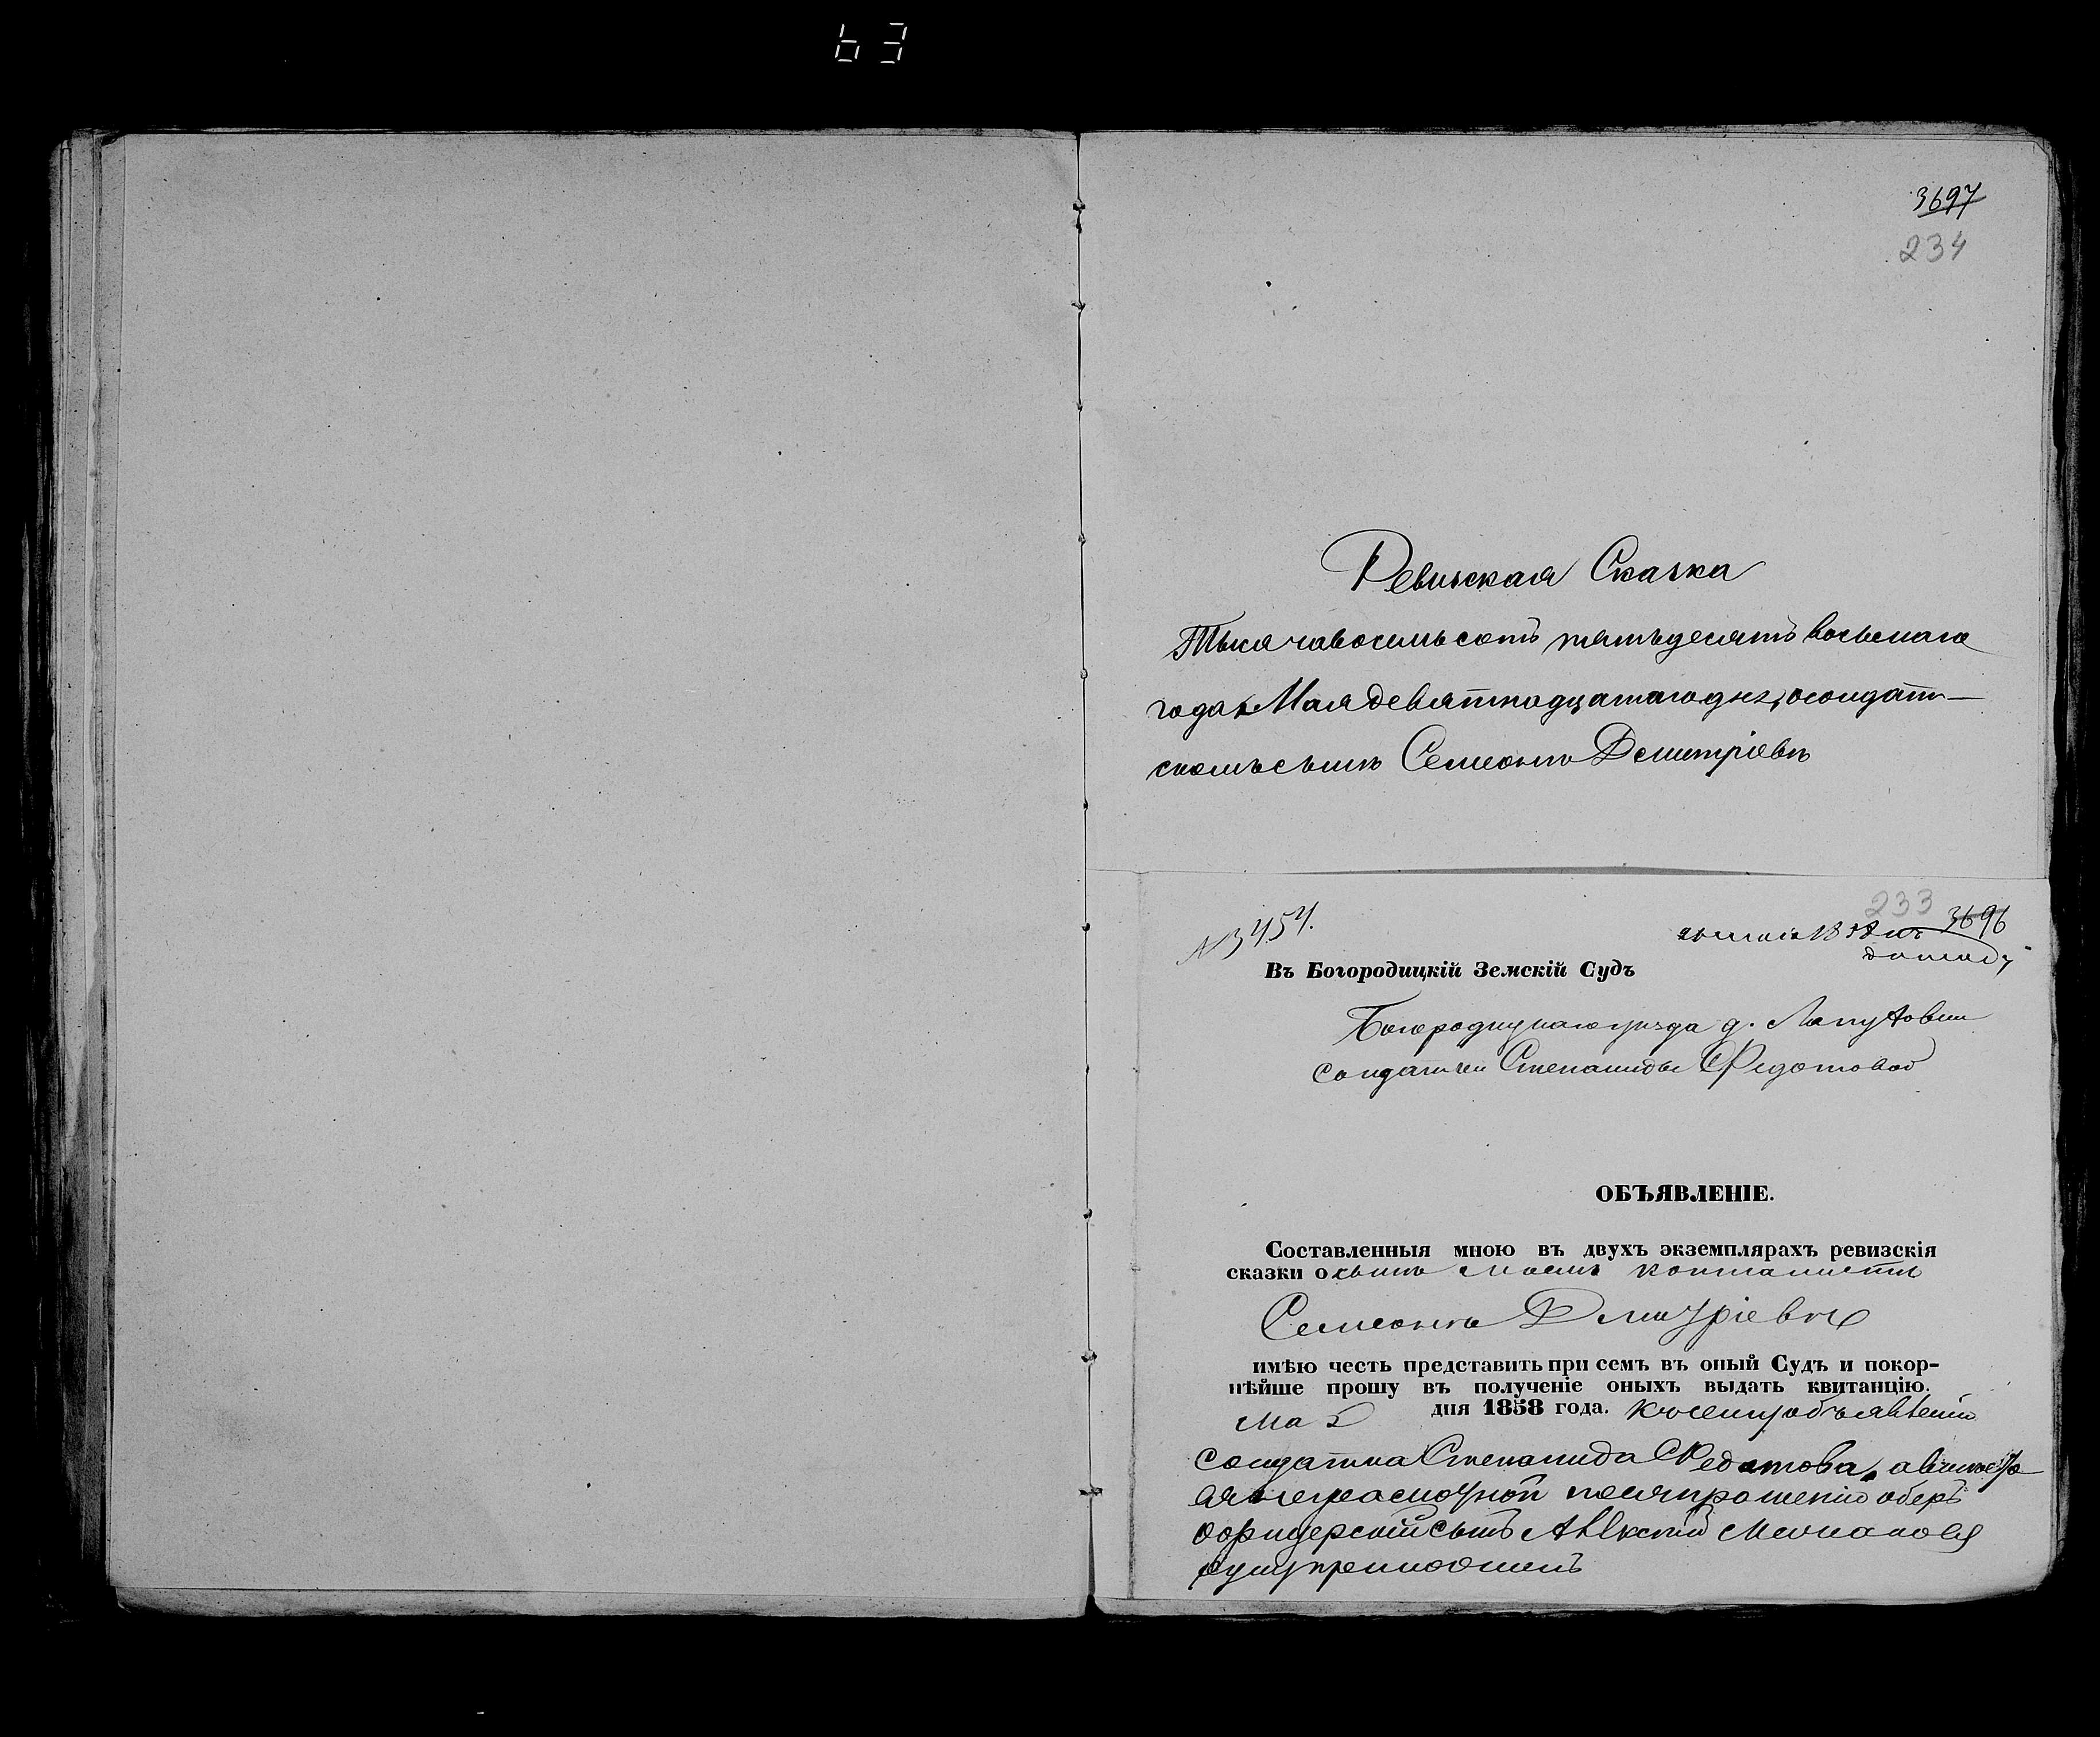 63
3697
234
Ревиская Сказка
Тысяча восемьсотъ пятьдесятъ восьмаго
года Мая девятнадцатаго дня, о солдат-
скомъ сынѣ Семенѣ Дмитріевѣ
№ 3454.
233
3696
мая 1858
докладу
Въ Богородицкій Земскій Судъ
Богородицкаго уѣзда д.
солдатки Степаниды Федотовой
ОБЪЯВЛЕНІЕ.
Составленныя мною въ двухъ экземплярахъ ревизскія
сказки о сынѣ моемъ кантонистѣ
Семенѣ Дмитріевѣ
имѣю честь представить при семъ въ оный Судъ и покор-
нѣйше прошу въ полученіе оныхъ выдать квитанцію.
Мая дня 1858 года. Къ сему объявленію
солдатка Степанида Федотова, а вмѣсто
ея неграмотной по ея прошенію оберъ
офицерскій сынъ Алексѣй
руку приложилъ